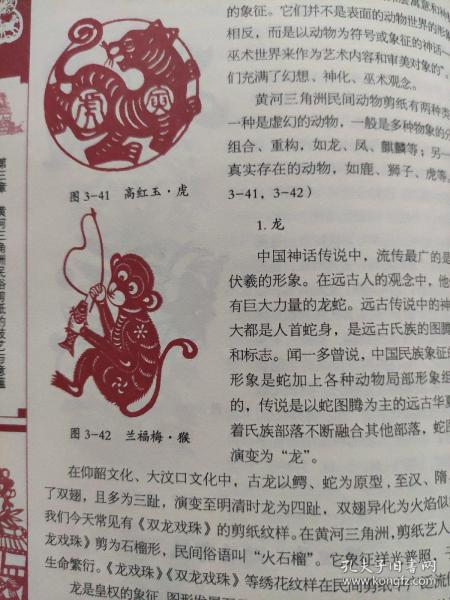 的象征。它们并不是表面的动物世界的形象
相反，而是以动物为符号或象征的神话—
巫术世界来作为艺术内容和审美对象的”。
们充满了幻想、神化、巫术观念。
黄河三角洲民间动物剪纸有两种类
一种是虚幻的动物，一般是多种物象的分
组合、重构，如龙、凤、麒麟等；另一
真实存在的动物，如鹿、狮子、虎等。
3-41，3-42）
虎
图 3-41 高红玉·虎
1. 龙
中国神话传说中，流传最广的是
伏羲的形象。在远古人的观念中，他
有巨大力量的龙蛇。远古传说中的神
大都是人首蛇身，是远古氏族的图腾
和标志。闻一多曾说，中国民族象征的
形象是蛇加上各种动物局部形象组
的，传说是以蛇图腾为主的远古华夏
着氏族部落不断融合其他部落，蛇图
演变为“龙”。
图 3-42 兰福梅·猴
在仰韶文化、大汶口文化中，古龙以鳄、蛇为原型，至汉、隋、
了双翅，且多为三趾，演变至明清时龙为四趾，双翅异化为火焰似的
我们今天常见有《双龙戏珠》的剪纸纹样。在黄河三角洲，剪纸艺人
龙戏珠》剪为石榴形，民间俗语叫“火石榴”。它象征祥光普照、子
生命繁衍。《龙戏珠》《双龙戏珠》等绣花纹样在民间剪纸中广泛流
龙是皇权的象征
第三章 黄河三角洲民俗剪纸的技艺与意蕴
孔夫子旧书网